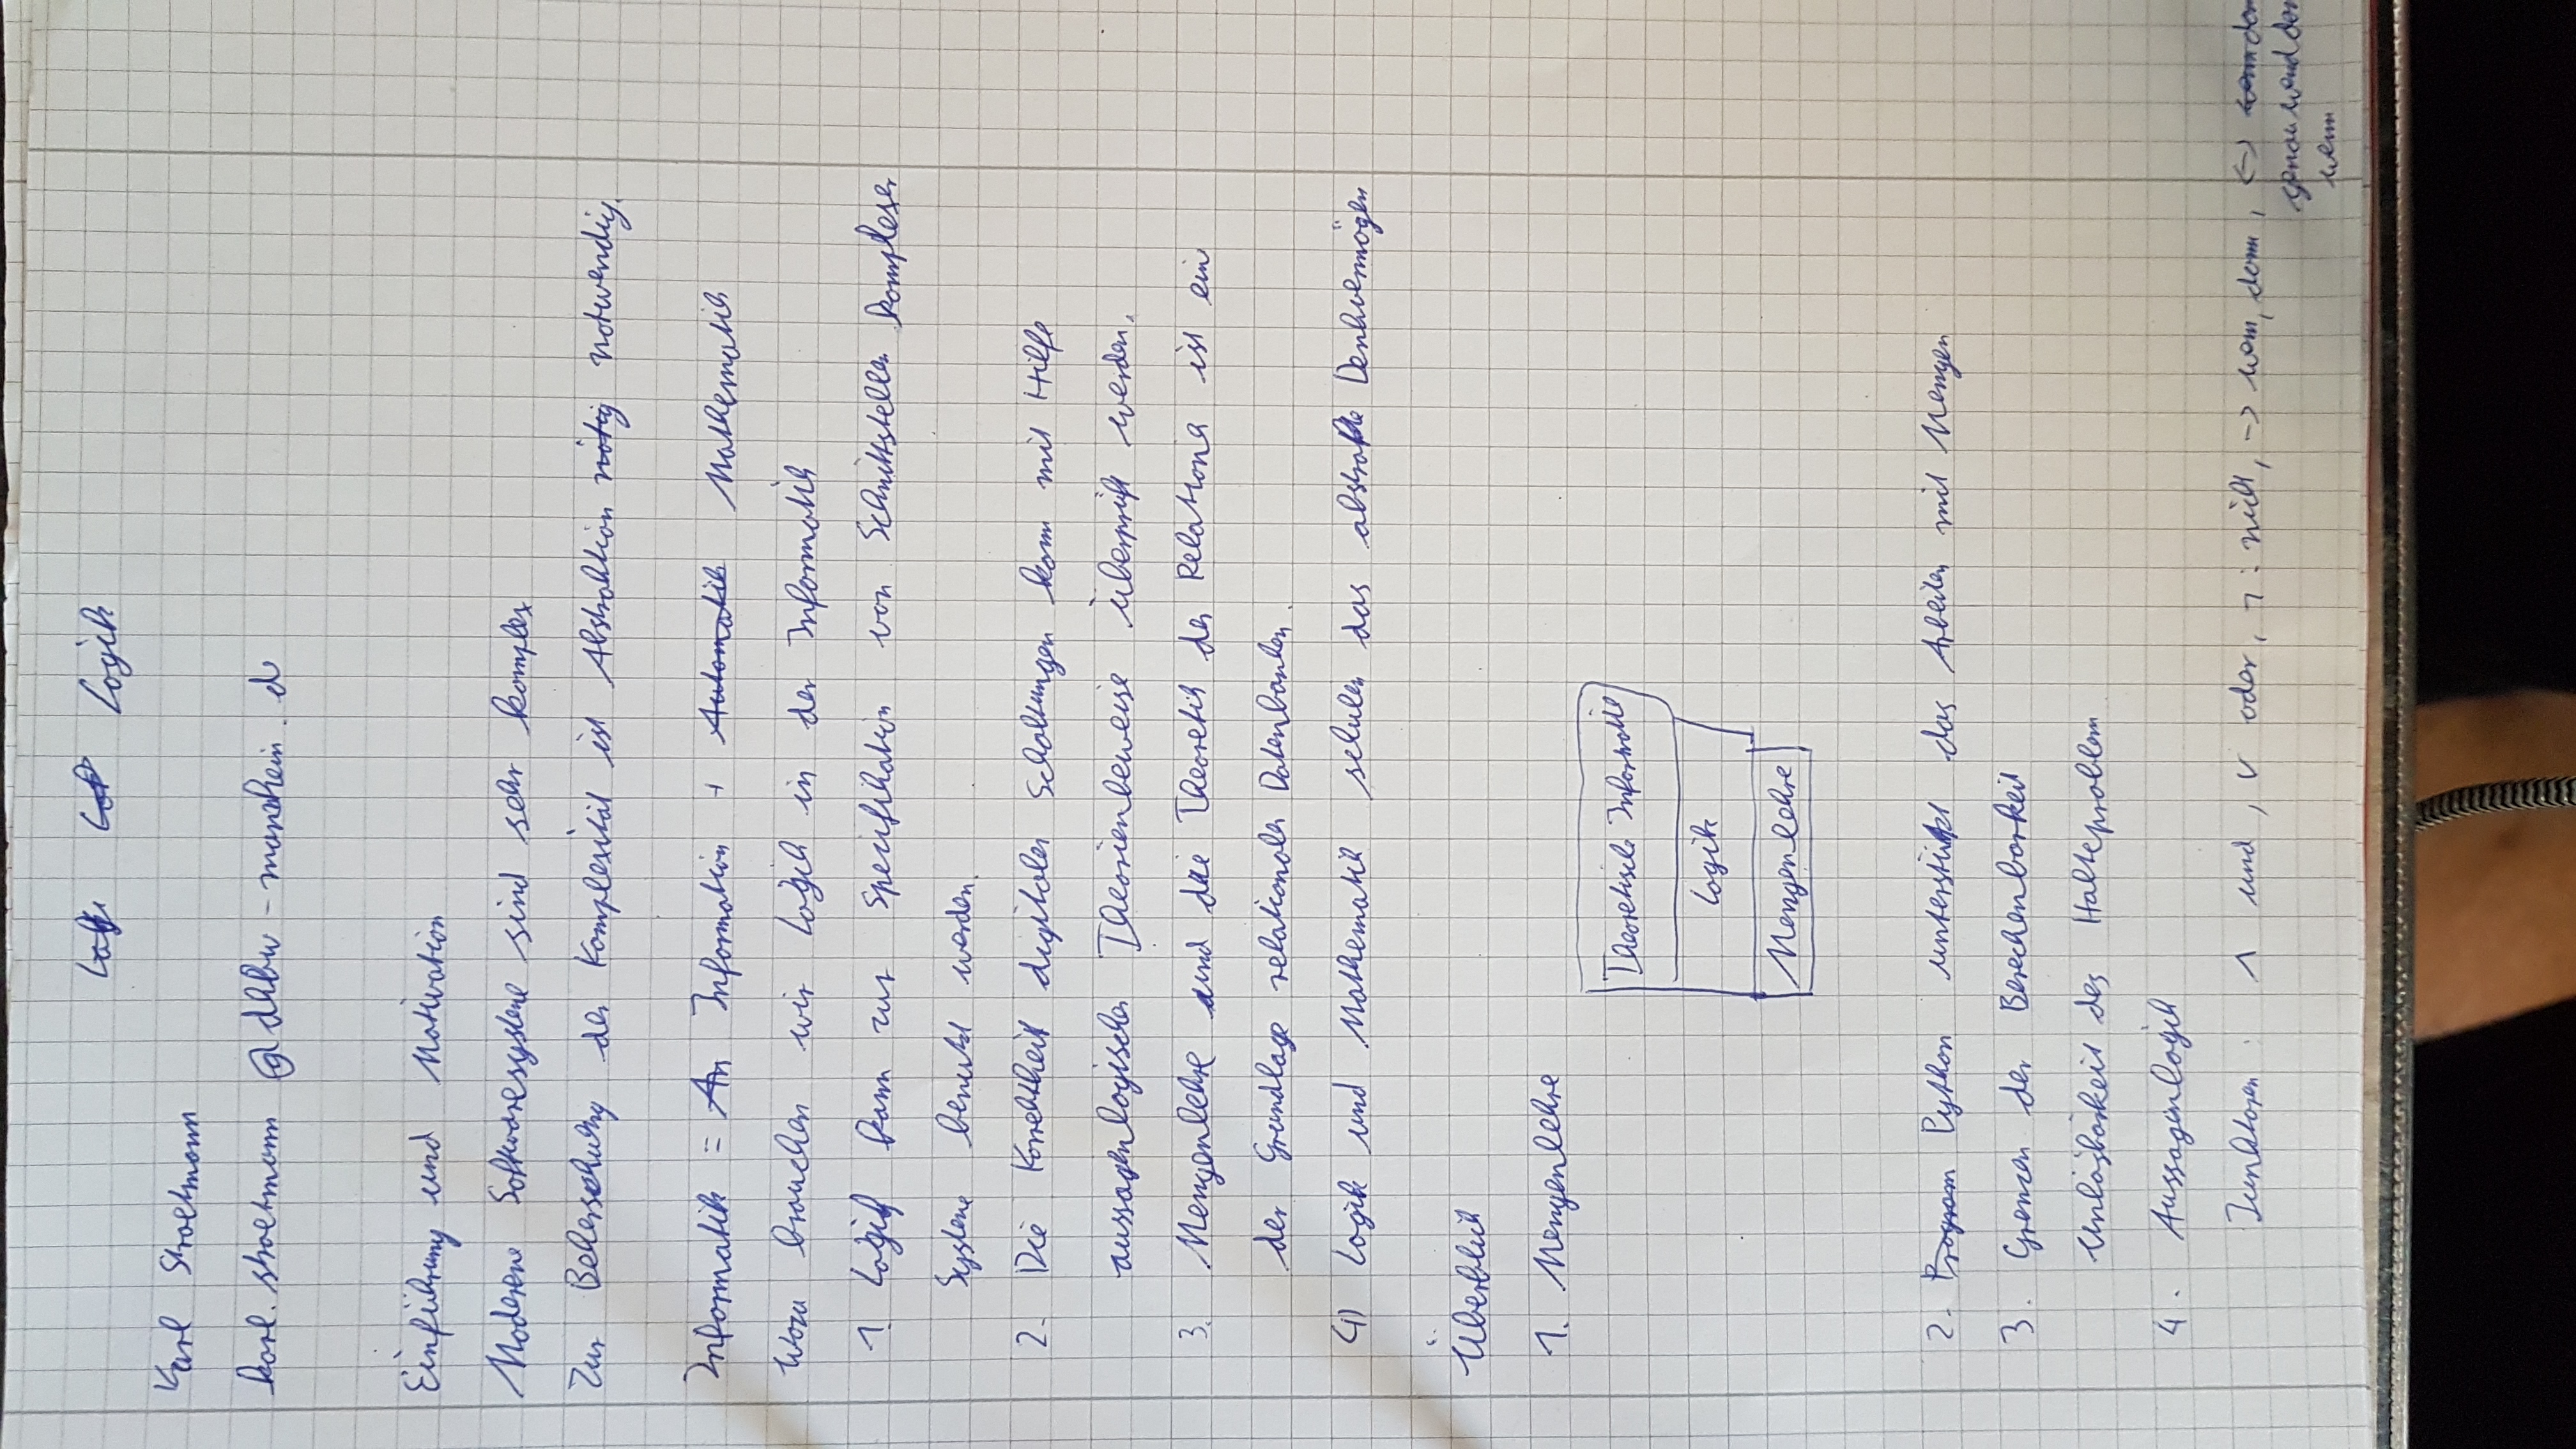 Logik
Karl Stroetmann
karl.stroetmann@dhbw-mannheim.d
Einführung und Motivation
Moderene Softwaresysteme sind sehr komplex
Zur Beherschung der Komplexität ist Abstraktion nötig notwendig.
Informatik = An Information + Automatik Mathematik
Wozu brauchen wir Logik in der Informatik
1. Logik kann zur Spezifikation von Schnittstellen komplexer
Systeme benutzt werden.
2. Die Korrektheit digitaler Schaltungen kann mit Hilfe
aussagenlogischer Theorienbeweise überprüft werden.
3. Mengenlehre und die Theoretik der Relationa ist ein
der Grundlage relationaler Datenbanken.
4) Logik und Mathematik schulen das abstrakte Denkvermögen
Überblick
1. Mengenlehre
Theoretische Informatik
Logik
Mengenlehre
2. Program Python unterstützt das Arbeiten mit Mengen
3. Grenzen der Berechenbarkeit
Unlösbarkeit des Halteproblem
4. Aussagenlogik
Junktoren: ∧ und, ∨ oder, ¬: nicht, -> wenn, dann, <->
genau wend dan
wenn